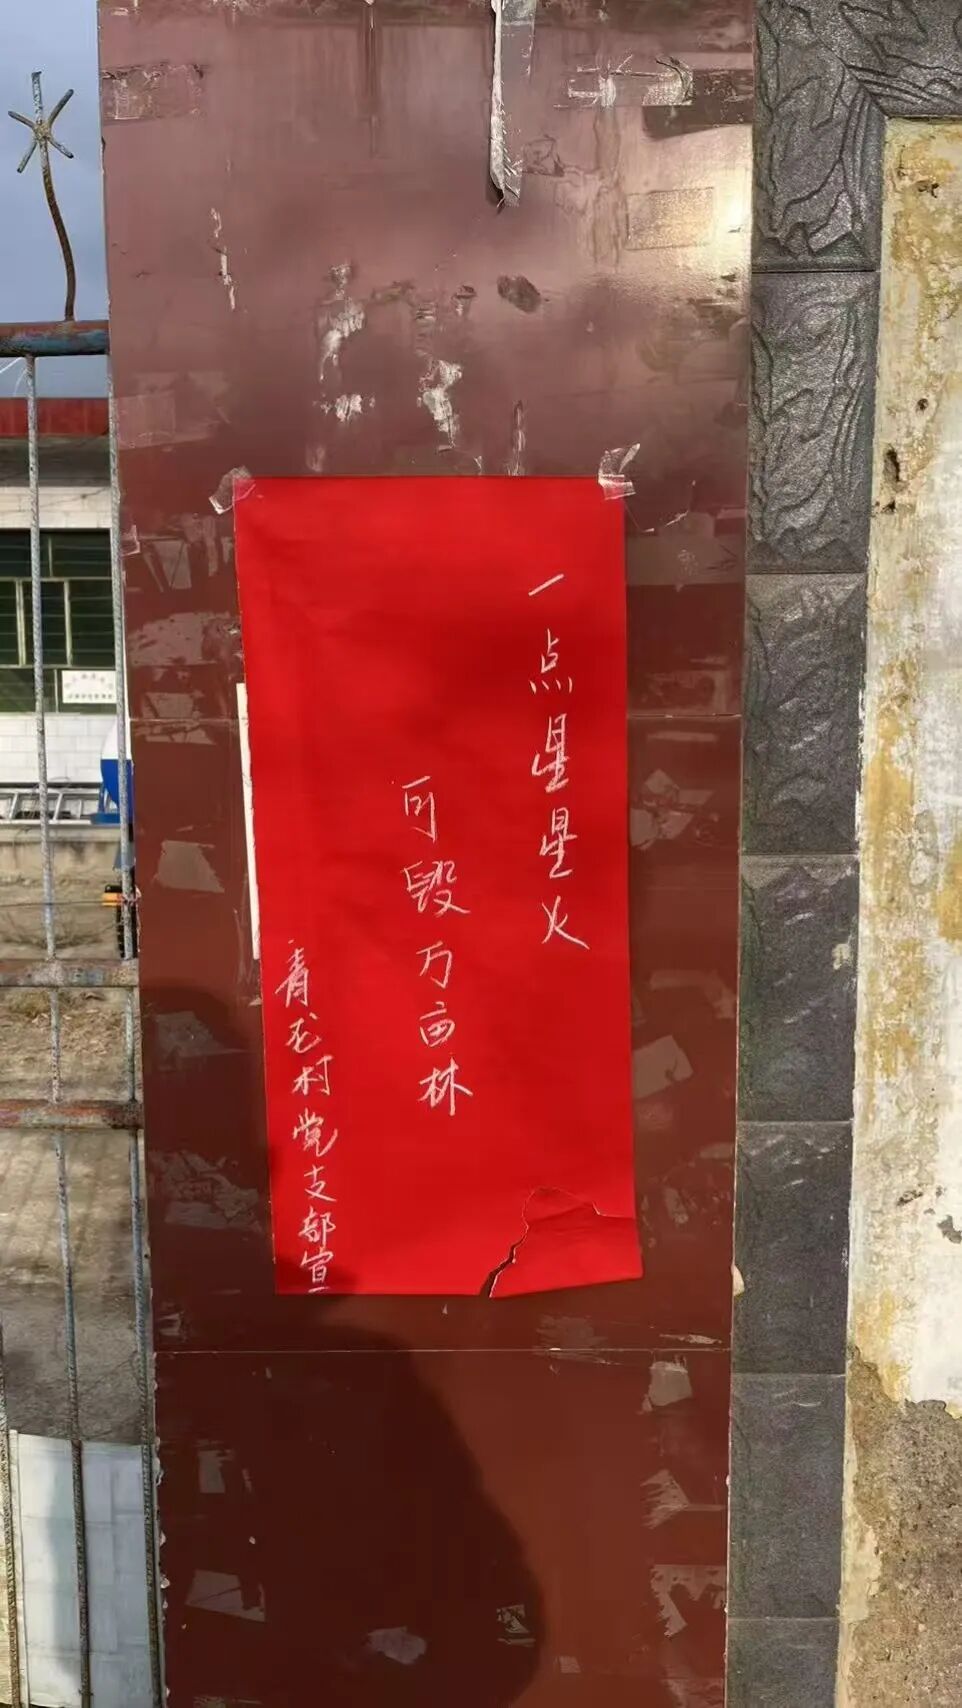 一点星星火
可毁万亩林
青龙村党支部宣